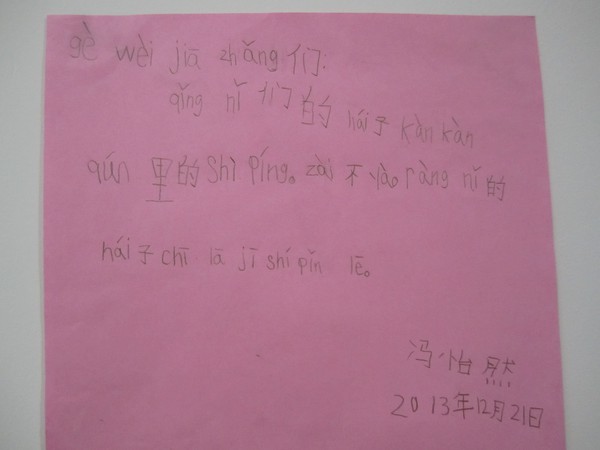 gè wèi jiā zhǎng们:
qǐng nǐ们的hái子kàn kàn
qún里的shì píng。zài不yào ràng nǐ的
hái子chī lā jī shí pǐn lē。
冯怡然
2013年12月21日